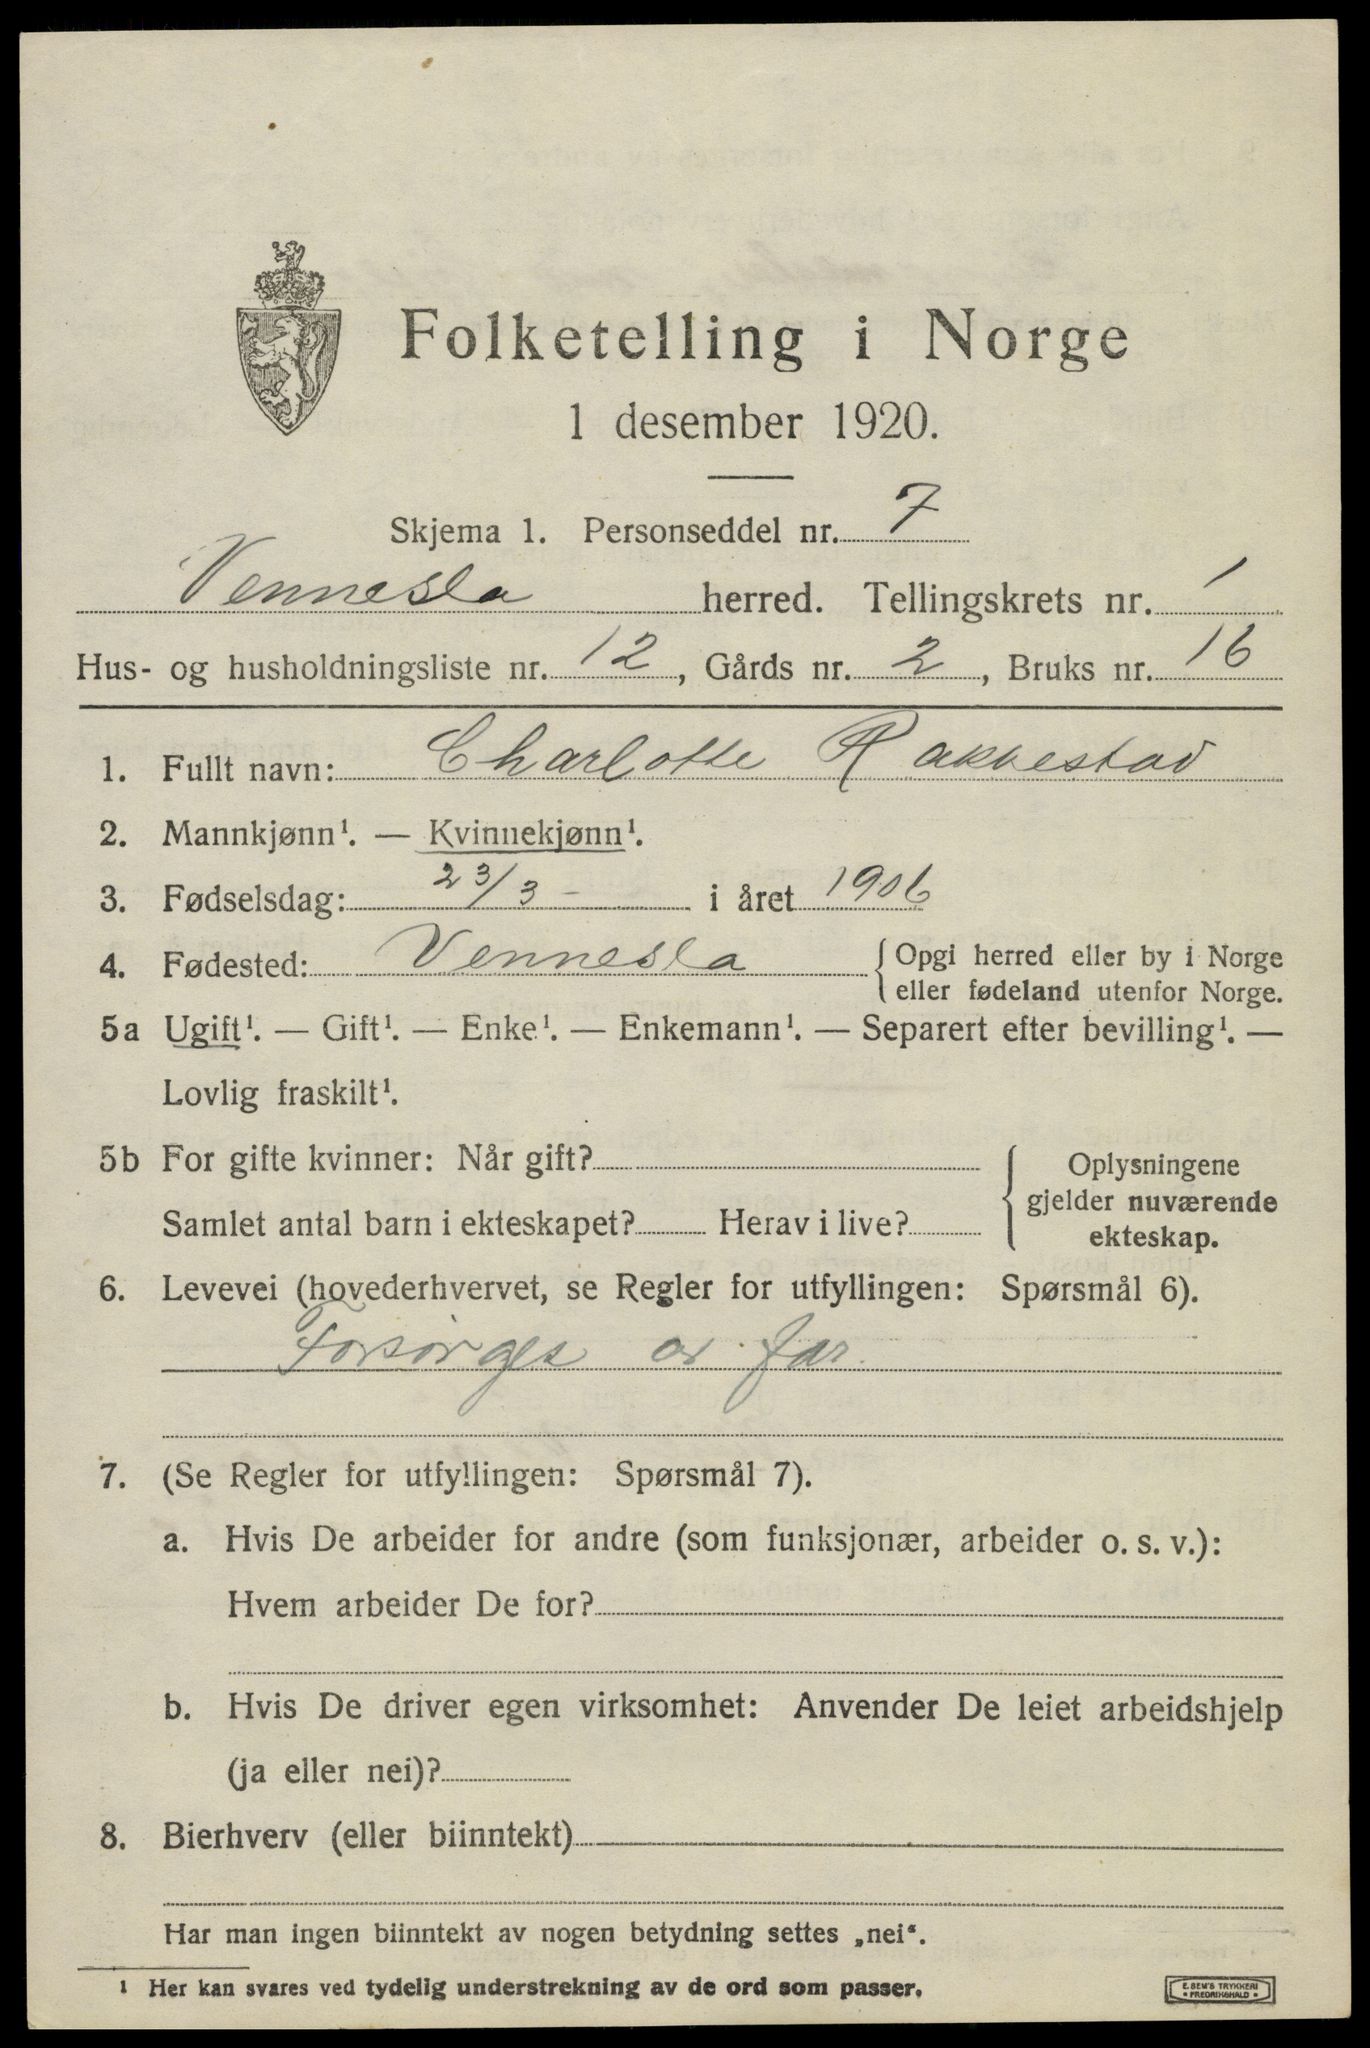 Folketelling i Norge
1 desember 1920.
Skjema 1. Personseddel nr. 7
Vennesla herred. Tellingskrets nr. 1
Hus- og husholdningsliste nr. 12, Gårds nr. 2, Bruks nr. 16
1. Fullt navn: Charlotte Rakkestad
2. Mannkjønn¹. — Kvinnekjønn¹.
3. Fødselsdag: 23/3 - i året 1906
4. Fødested: Vennesla { Opgi herred eller by i Norge
eller fødeland utenfor Norge.
5a Ugift¹. — Gift¹. — Enke¹. — Enkemann¹. — Separert efter bevilling¹. —
Lovlig fraskilt¹.
5b For gifte kvinner: Når gift?
Samlet antal barn i ekteskapet? Herav i live?
{ Oplysningene
gjelder nuværende
ekteskap.
6. Levevei (hovederhvervet, se Regler for utfyllingen: Spørsmål 6).
Forsørges av far.
7. (Se Regler for utfyllingen: Spørsmål 7).
a. Hvis De arbeider for andre (som funksjonær, arbeider o. s. v.):
Hvem arbeider De for?
b. Hvis De driver egen virksomhet: Anvender De leiet arbeidshjelp
(ja eller nei)?
8. Bierhverv (eller biinntekt)
Har man ingen biinntekt av nogen betydning settes „nei“.
¹ Her kan svares ved tydelig understrekning av de ord som passer.
E. SEM'S TRYKKERI
• FREDRIKSHALD •